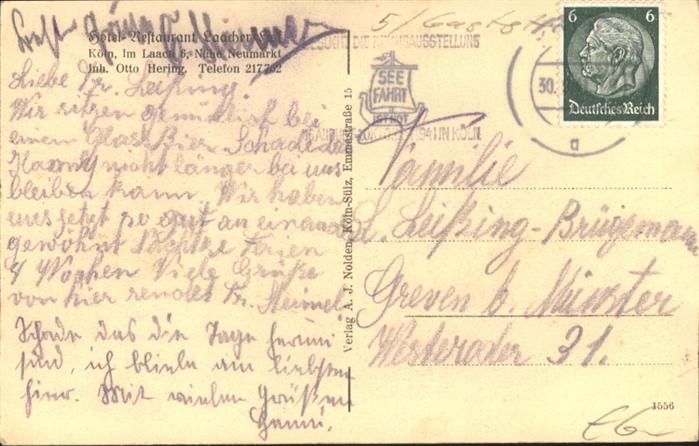 Hotel-Restaurant Laacher Hof
Köln, Im Laach 6, Nähe Neumarkt
Inh. Otto Hering, Telefon 217762
Liebe Fr. Leißing.
Wir sitzen gemütlich bei
einem Glas Bier. Schade das
Hanni nicht länger bei uns
bleiben kann. Wir haben
uns jetzt so gut an einander
gewöhnt
4 Wochen Viele Grüße
von hier sendet Fr.
Schade das die Tage herum
sind, ich bliebe am liebsten
hier. Mit vielen Grüßen
Hanni.
Verlag A. J. Nolden, Köln-Sülz, Emmastraße 15
BESUCHT DIE AUSSTELLUNG
SEE
FAHRT
IST NOT
1941 IN KÖLN
30.
a
6 6
Deutsches Reich
Familie
Leißing-Brügemann
Greven b. Münster
Westeroder 31.
1556